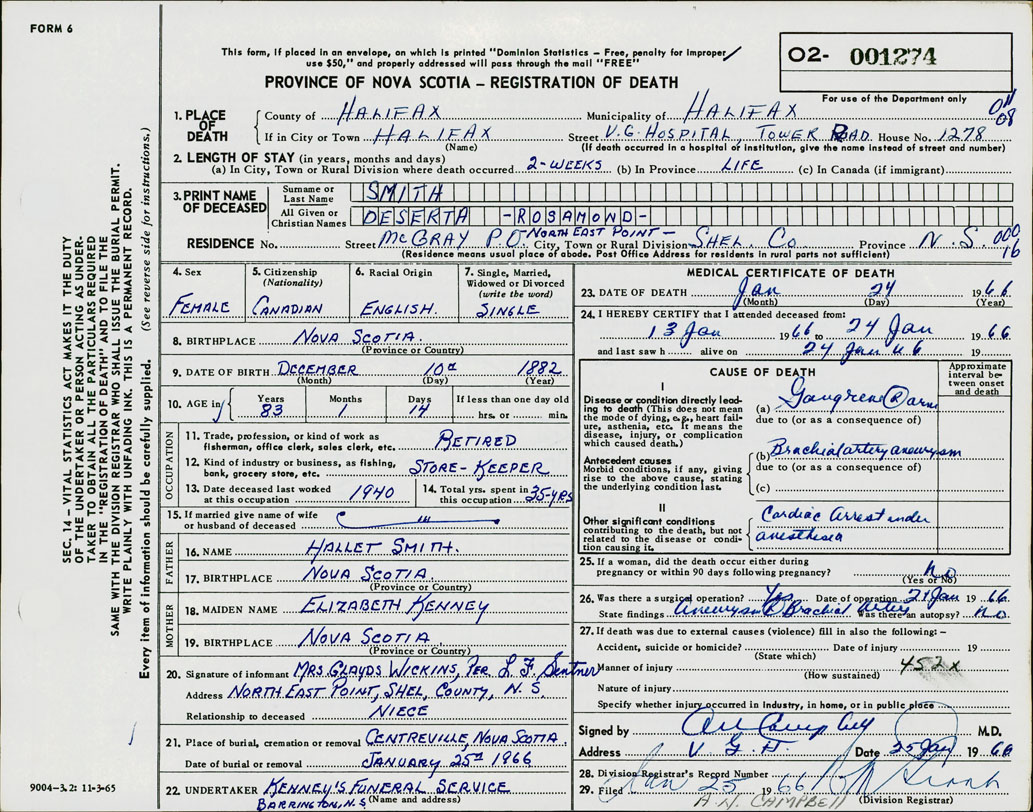 FORM 6
This form, if placed in an envelope, on which is printed "Dominion Statistics – Free, penalty for improper
use $50," and properly addressed will pass through the mail "FREE"
PROVINCE OF NOVA SCOTIA – REGISTRATION OF DEATH
02- 001274
For use of the Department only
1. PLACE OF DEATH
County of HALIFAX Municipality of HALIFAX 011 08
If in City or Town HALIFAX Street V.G. HOSPITAL, TOWER ROAD. House No. 1278
(Name) (If death occurred in a hospital or institution, give the name instead of street and number)
2. LENGTH OF STAY (in years, months and days)
(a) In City, Town or Rural Division where death occurred 2-WEEKS (b) In Province LIFE (c) In Canada (if immigrant)
3. PRINT NAME OF DECEASED
Surname or Last Name SMITH
All Given or Christian Names DESERTA -ROSAMOND-
RESIDENCE No. Street McGRAY P.O. -NORTH EAST POINT- City, Town or Rural Division SHEL. Co Province N.S. 000 16
(Residence means usual place of abode. Post Office Address for residents in rural parts not sufficient)
4. Sex FEMALE
5. Citizenship (Nationality) CANADIAN
6. Racial Origin ENGLISH.
7. Single, Married, Widowed or Divorced (write the word) SINGLE
8. BIRTHPLACE NOVA SCOTIA.
(Province or Country)
9. DATE OF BIRTH DECEMBER 10th 1882
(Month) (Day) (Year)
10. AGE in Years 83 Months 1 Days 14 If less than one day old hrs. or min.
OCCUPATION
11. Trade, profession, or kind of work as
fisherman, office clerk, sales clerk, etc. RETIRED
12. Kind of industry or business, as fishing,
bank, grocery store, etc. STORE-KEEPER
13. Date deceased last worked
at this occupation 1940
14. Total yrs. spent in
this occupation 35-yrs
15. If married give name of wife
or husband of deceased
FATHER
16. NAME HALLET SMITH.
17. BIRTHPLACE NOVA SCOTIA.
(Province or Country)
MOTHER
18. MAIDEN NAME ELIZABETH KENNEY
19. BIRTHPLACE NOVA SCOTIA.
(Province or Country)
20. Signature of informant MRS GLAYDS WICKINS, PER L. F. Sentner
Address NORTH EAST POINT, SHEL, COUNTY, N.S
Relationship to deceased NIECE
21. Place of burial, cremation or removal CENTREVILLE, NOVA SCOTIA.
Date of burial or removal JANUARY 25th 1966
22. UNDERTAKER KENNEY'S FUNERAL SERVICE
BARRINGTON, N.S (Name and address)
MEDICAL CERTIFICATE OF DEATH
23. DATE OF DEATH Jan 24 1966
(Month) (Day) (Year)
24. I HEREBY CERTIFY that I attended deceased from:
13 Jan 1966 to 24 Jan 1966
and last saw h alive on 24 Jan 66 19
CAUSE OF DEATH
Approximate interval between onset and death
I
Disease or condition directly lead-
ing to death (This does not mean
the mode of dying, e.g., heart fail-
ure, asthenia, etc. It means the
disease, injury, or complication
which caused death.)
(a) Gangrene R arm
due to (or as a consequence of)
Antecedent causes
Morbid conditions, if any, giving
rise to the above cause, stating
the underlying condition last.
(b) Brachial artery aneurysm
due to (or as a consequence of)
(c)
II
Other significant conditions
contributing to the death, but not
related to the disease or condi-
tion causing it.
Cardiac Arrest under
anesthesia
25. If a woman, did the death occur either during
pregnancy or within 90 days following pregnancy? no
(Yes or No)
26. Was there a surgical operation? Yes Date of operation 21 Jan 1966
State findings aneurysm R Brachial Artery Was there an autopsy? no
27. If death was due to external causes (violence) fill in also the following: –
Accident, suicide or homicide? Date of injury 19
(State which)
Manner of injury 452 x
(How sustained)
Nature of injury
Specify whether injury occurred in industry, in home, or in public place
Signed by M.D.
Address V. G. H. Date 25 Jan 1966
28. Division Registrar's Record Number
29. Filed Jan 25 1966
A.N. CAMPBELL (Division Registrar)
SEC. 14 – VITAL STATISTICS ACT MAKES IT THE DUTY
OF THE UNDERTAKER OR PERSON ACTING AS UNDER-
TAKER TO OBTAIN ALL THE PARTICULARS REQUIRED
IN THE "REGISTRATION OF DEATH" AND TO FILE THE
SAME WITH THE DIVISION REGISTRAR WHO SHALL ISSUE THE BURIAL PERMIT.
WRITE PLAINLY WITH UNFADING INK. THIS IS A PERMANENT RECORD.
Every item of information should be carefully supplied. (See reverse side for instructions.)
9004–3.2: 11-3-65